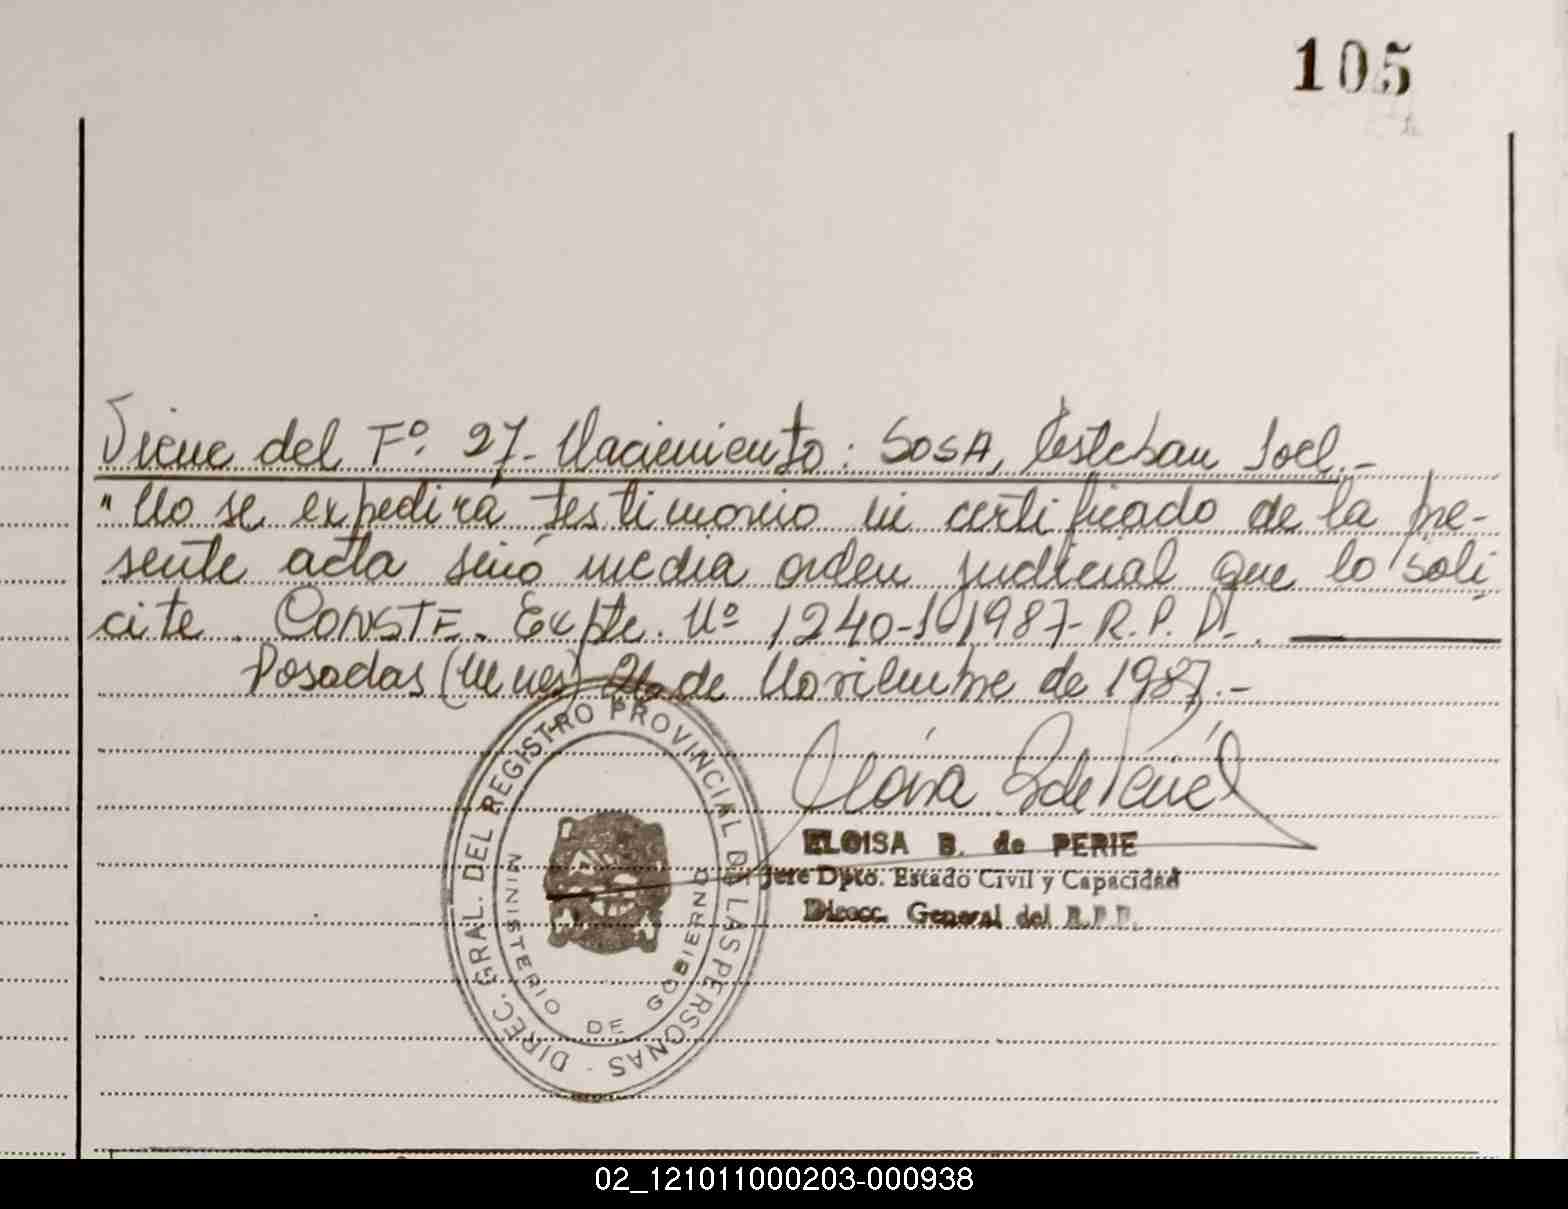 105
Viene del Fº. 27- Nacimiento: SOSA, Esteban Joel.-
"No se expedirá testimonio ni certificado de la pre-
sente acta sinó media orden judicial que lo soli
cite. CONSTE. Expte. Nº 1240-1987- R.P.P.
Posadas (Mnes) 26 de Noviembre de 1987.-
DIREC. GRAL. DEL REGISTRO PROVINCIAL DE LAS PERSONAS -
MINISTERIO DE GOBIERNO
ELOISA B. de PERIE
Jefe Dpto. Estado Civil y Capacidad
Direcc. General del R.P.P.
02_121011000203-000938